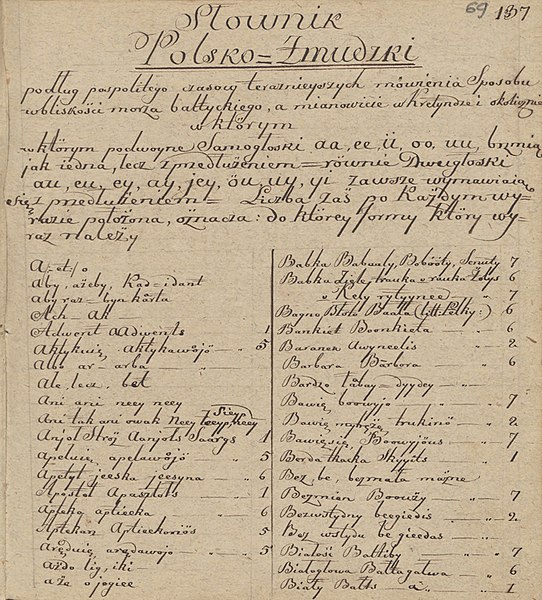 69 137
Słownik
Polsko=Żmudzki
podług pospolitego, czasow teraznieyszych mówienia Sposobu
w bliskości morza bałtyckiego, a mianowicie w Kretyndze i okolicznie
w którym
w którym podwoyne Samogłoski aa, ee, ii, oo, uu, brzmią
jak iedna, lecz z przedłużeniem = równie Dwugłoski
au, eu, ey, ay, jey, öu, uy, yi zawsze wymawiaią
się z przedłużeniem = Liczba zaś po każdym wy-
razie położona, oznacza: do którey formy który wy-
raz należy
A = et / o
aby, ażeby, Kad = idant
aby raz = byn kârta
Ach = ak —
Adwent aadwents — 1
Aktykuię, aktykawöjö — 5
Albo ar = arba
Ale, lecz, bet
Ani ani neey neey
Ani tak ani owak Neey teeyp, neey
Sieyp
Anjol Stróż Aanjols Saargs 1
Apeluię, apelawöjö — 5
Apetyt jeeska jeesyna — 6
Apostoł Apasztols — 1
Apteka aptieeka — 6
Aptekarz Aptieekoriös — 5
Aręduię, arędawojo — „ 5
ażdo lig, iki
aże o jogiee
Babka Babwaly, Bobööty, Senuity 7
Babka Ziele, trauka v rauka Żolys 6
v Kely rytyynee — „ 7
Bagno Błoto Baała (litt. Pelky:) 6
Bankiet Boonkieta — „ 6
Baranek Awyneelis — „ 2
Barbara Bārbora — „ 6
Bardzo łâbay = dyydey — „
Bawię, boowyjo — „ 7
Bawię, mitrężę, trukinö — „ 2
Bawię się, Boowyjöus — „ 7
Berda tkacka Skyyts — „ 1
Bez, be, bezmala mâżne
Bezmian Boouży — „ 7
Bezwstydny beegiedis — „ 2
Bez wstydu be gieedas — „
Białość Baltiby — „ 7
Białogłowa Baltagalwa — „ 6
Biały Balts — a „ 1